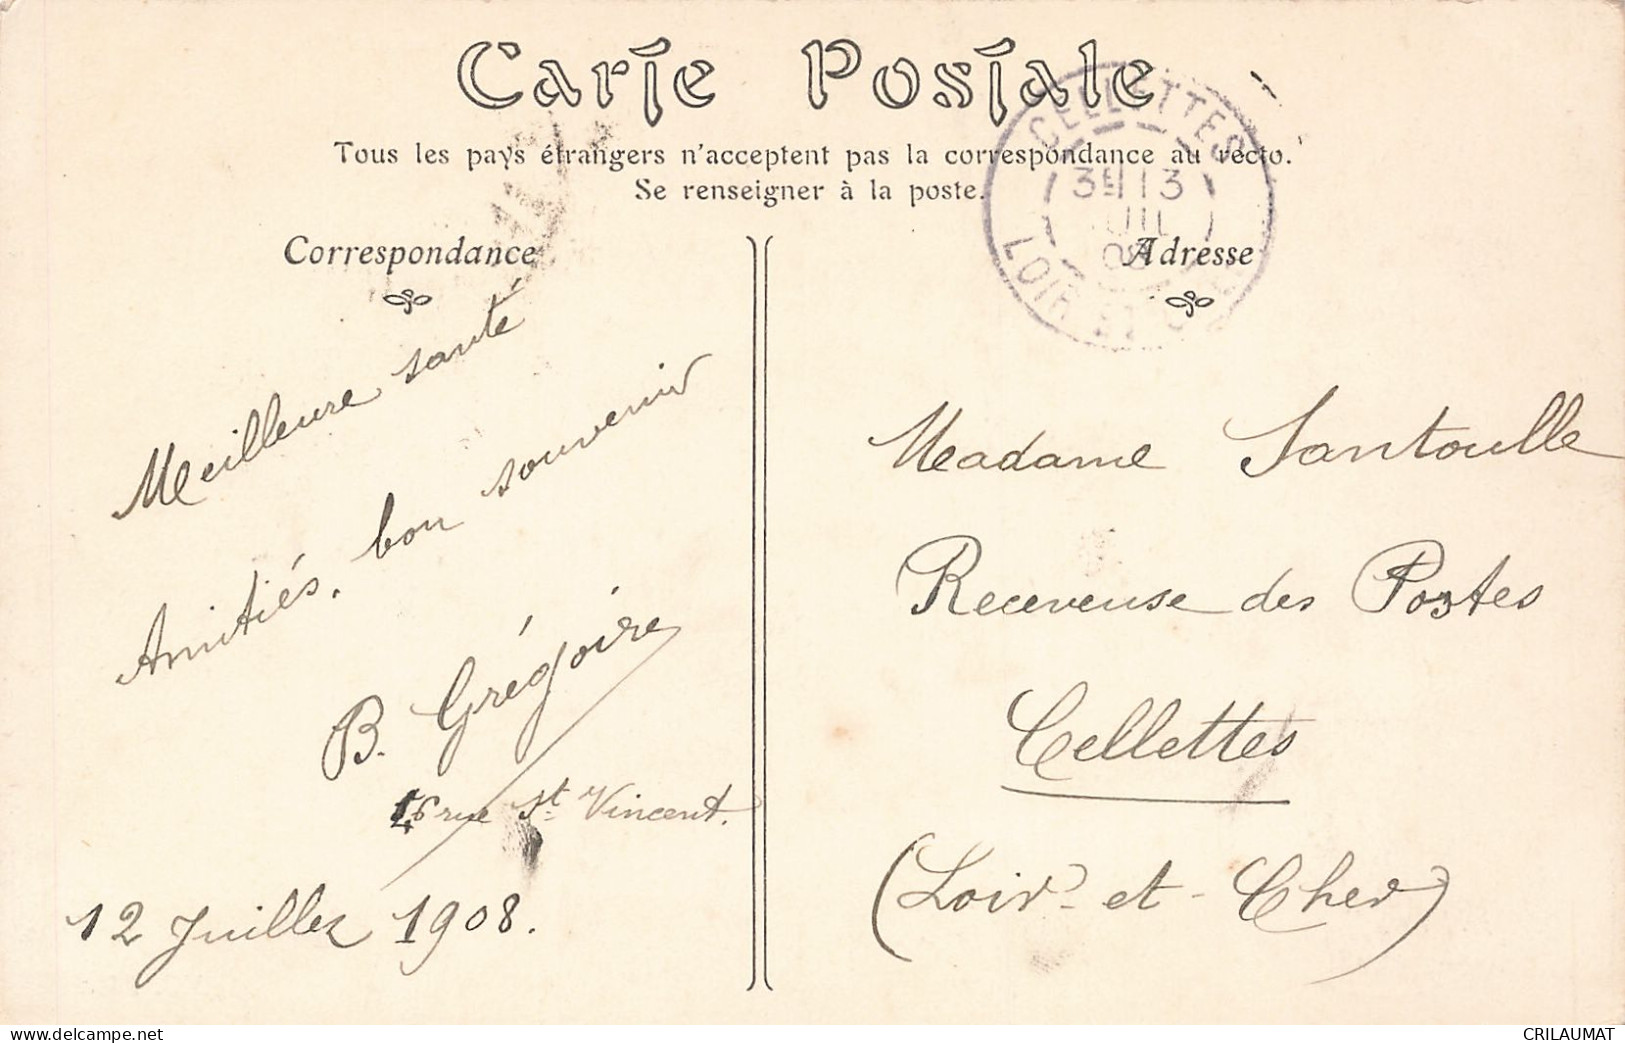 Carte Postale
Tous les pays étrangers n'acceptent pas la correspondance au recto.
Se renseigner à la poste.
CELLETTES
3E 13
LOIR ET
Correspondance
Adresse
Meilleure santé
Amitiés, bon souvenir
B. Grégoire
rue St Vincent.
12 Juillet 1908.
Madame Santoulle
Receveuse des Postes
Cellettes
(Loir-et-Cher)
www.delcampe.net
CRILAUMAT